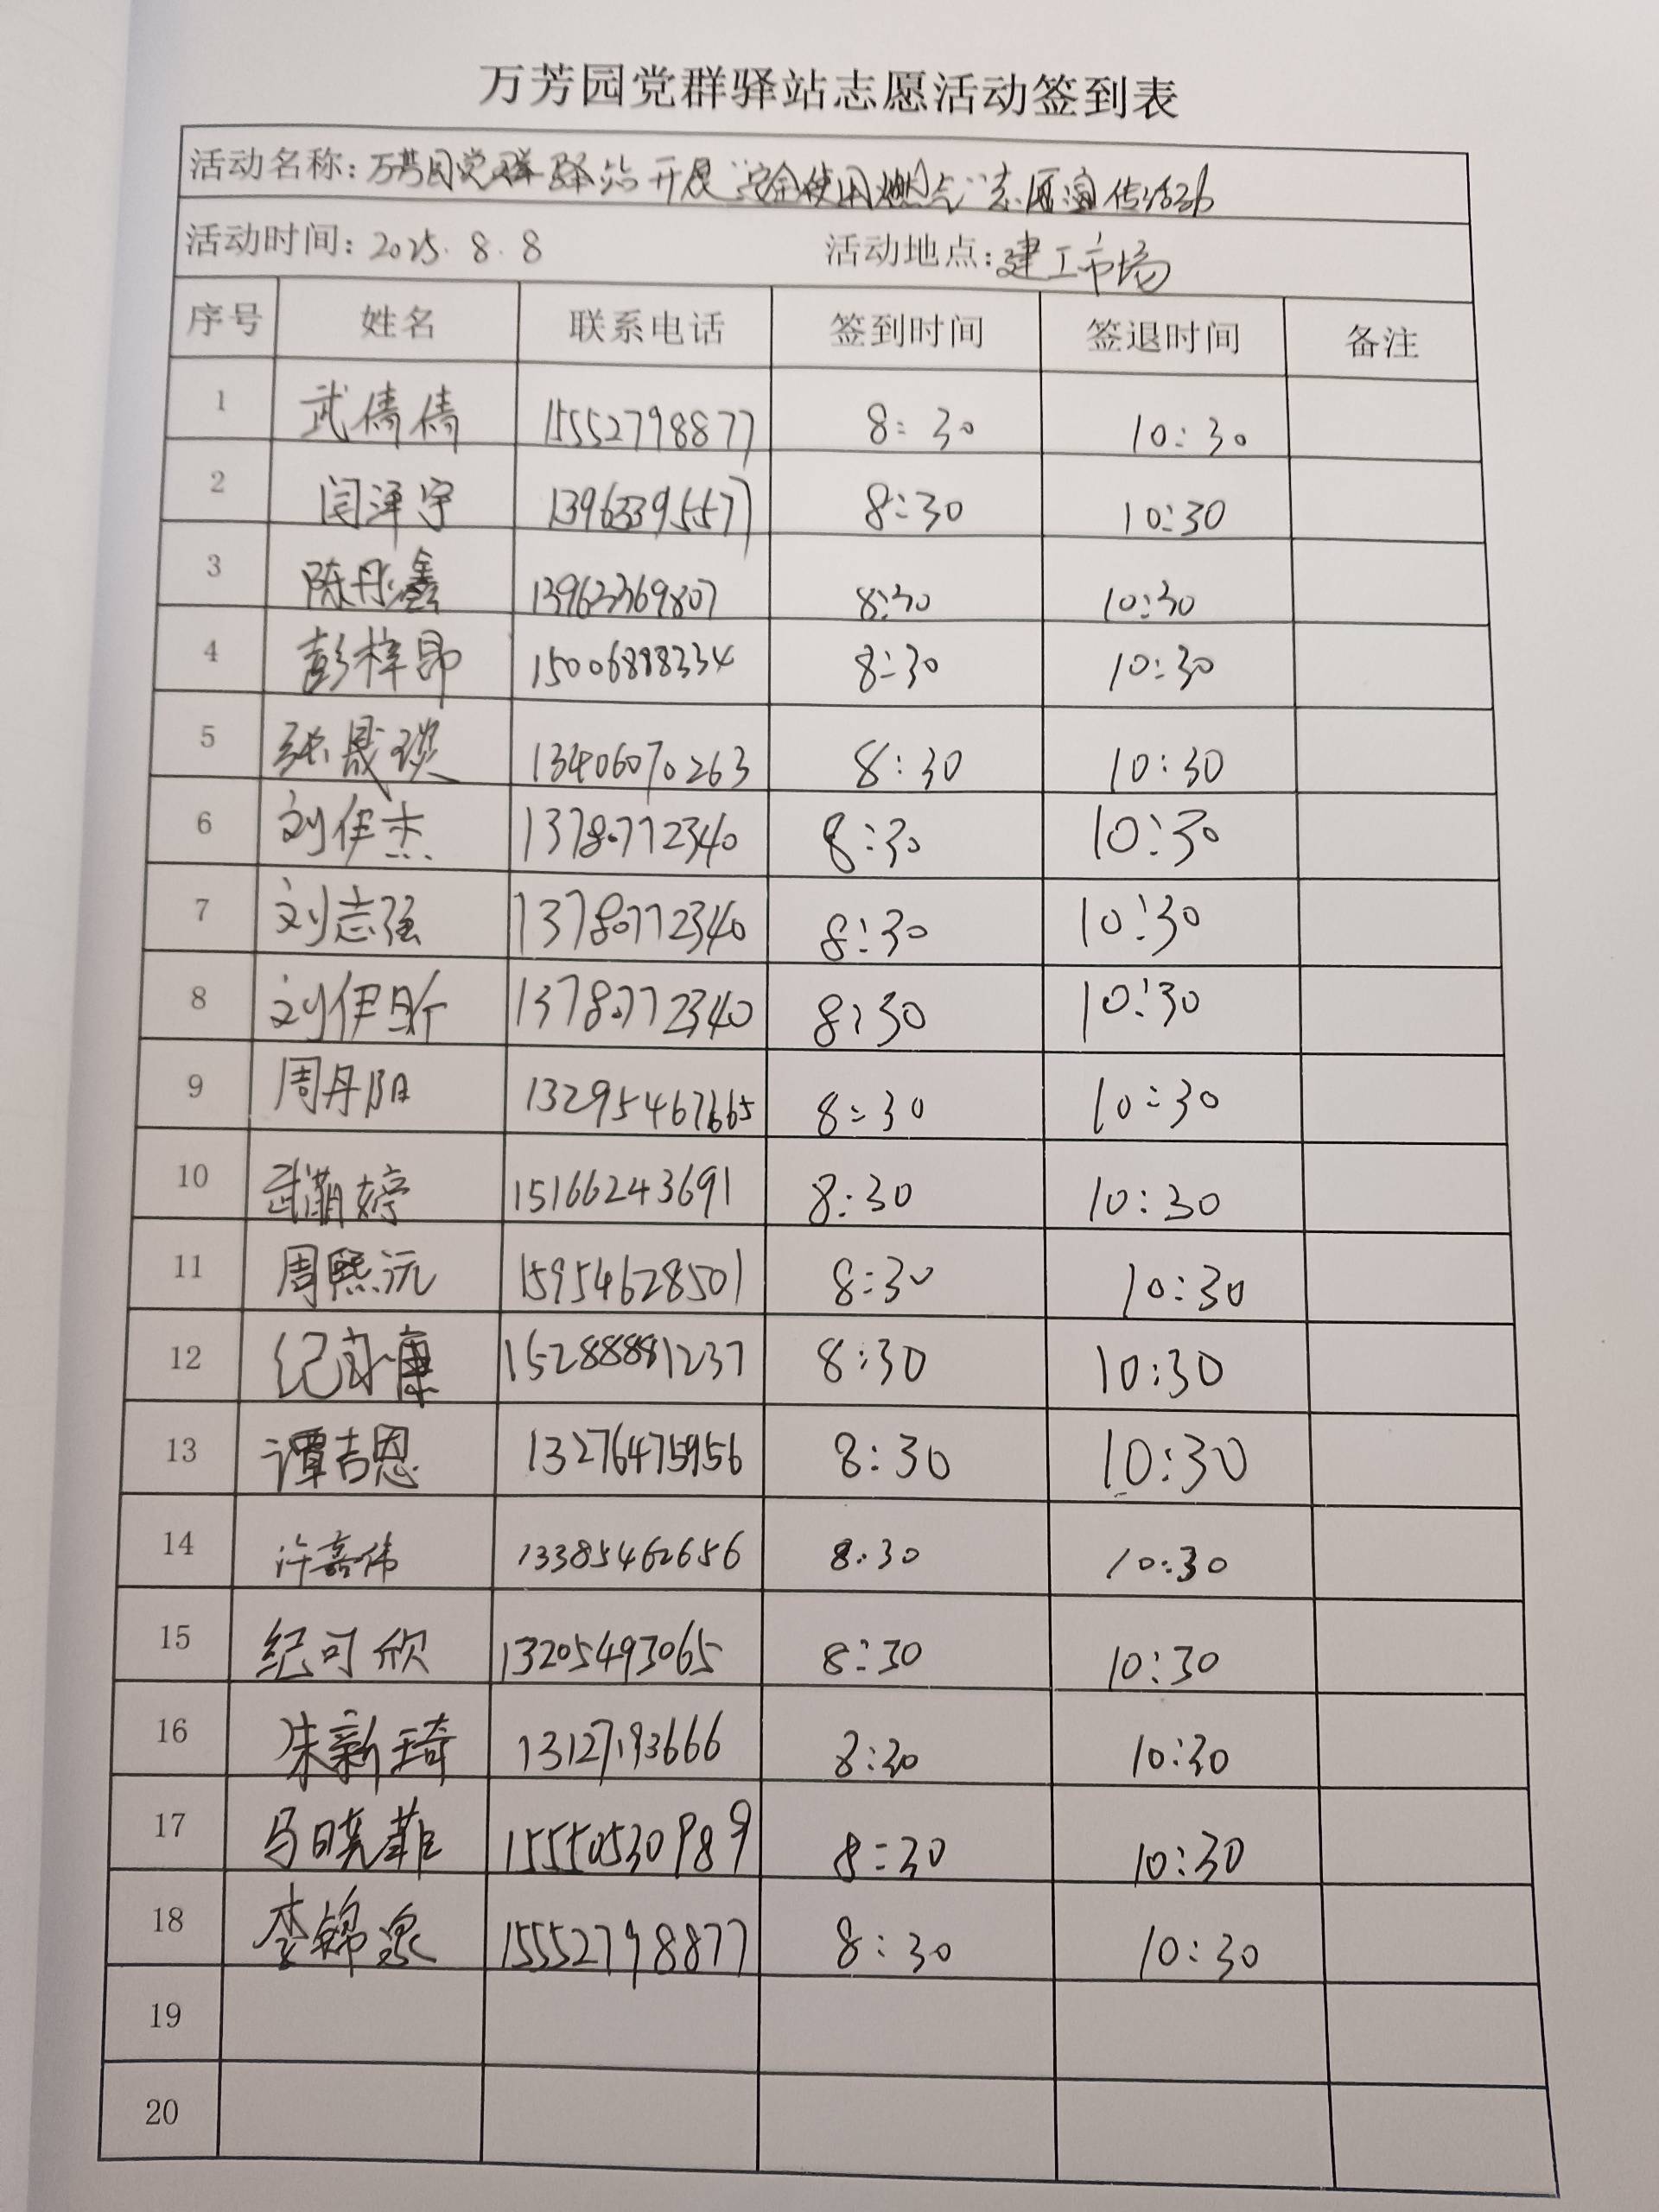 万芳园党群驿站志愿活动签到表
活动名称：万芳园党群驿站开展“安全使用燃气”志愿宣传活动
活动时间：2025.8.8 活动地点：建工市场
序号 姓名 联系电话 签到时间 签退时间 备注
1 武倩倩 15552798877 8:30 10:30
2 闫泽宇 13963395577 8:30 10:30
3 陈彤鑫 13963369807 8:30 10:30
4 彭梓昂 15006888334 8:30 10:30
5 张晟瑛 13406070263 8:30 10:30
6 刘伊杰 13780772340 8:30 10:30
7 刘志强 13780772340 8:30 10:30
8 刘伊昕 13780772340 8:30 10:30
9 周丹阳 13295467665 8:30 10:30
10 武 婷 15166243691 8:30 10:30
11 周熙沅 15954628501 8:30 10:30
12 纪 康 15288881237 8:30 10:30
13 谭吉恩 13276475956 8:30 10:30
14 许嘉伟 13385462656 8:30 10:30
15 纪可欣 13205493065 8:30 10:30
16 朱新琦 13127193666 8:30 10:30
17 马晓菲 15550530989 8:30 10:30
18 李锦泉 15552798877 8:30 10:30
19
20